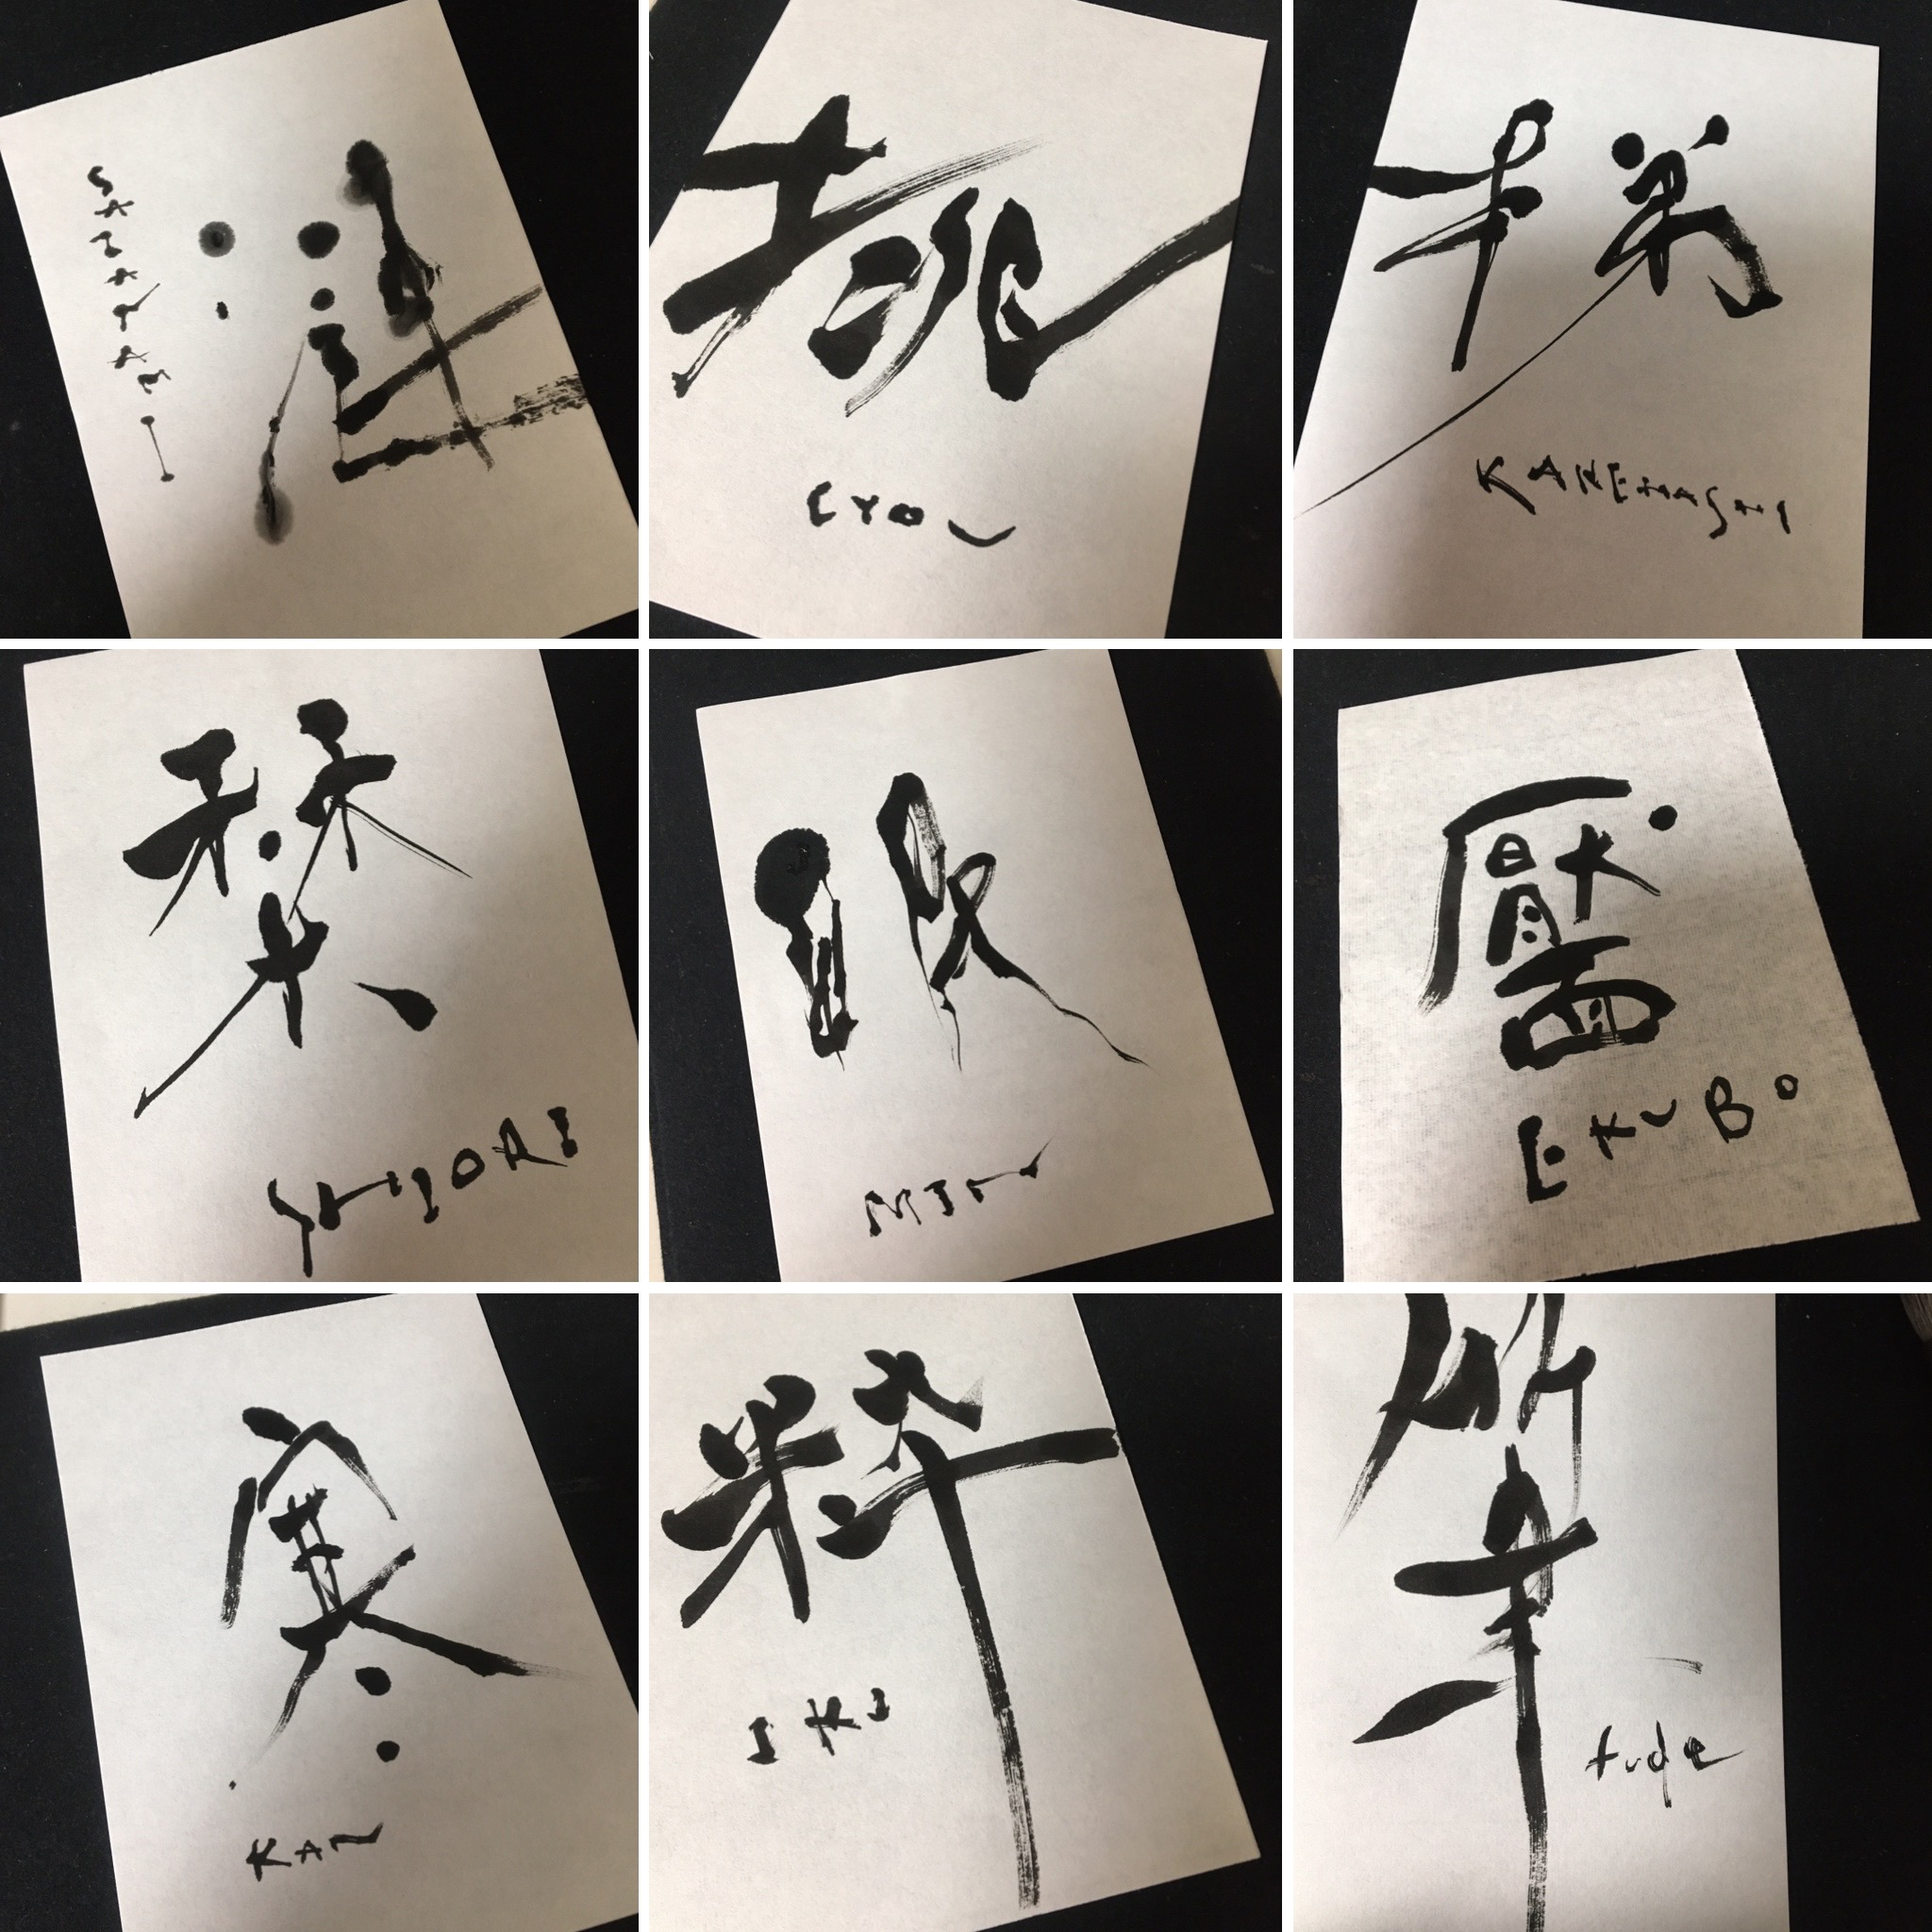 漣
SAZANAMI
挑
CYOU
梯
KAKEHASHI
栞
SHIORI
眠
MIN
靨
EKUBO
寒
KAN
粋
IKI
筆
fude